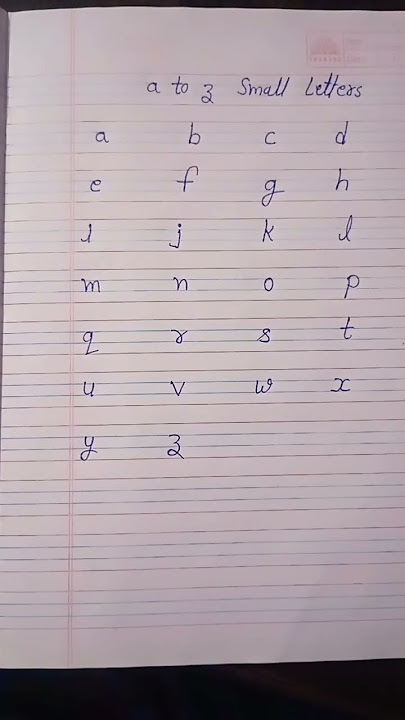 a to z Small Letters
a b c d
e f g h
i j k l
m n o p
q r s t
u v w x
y z